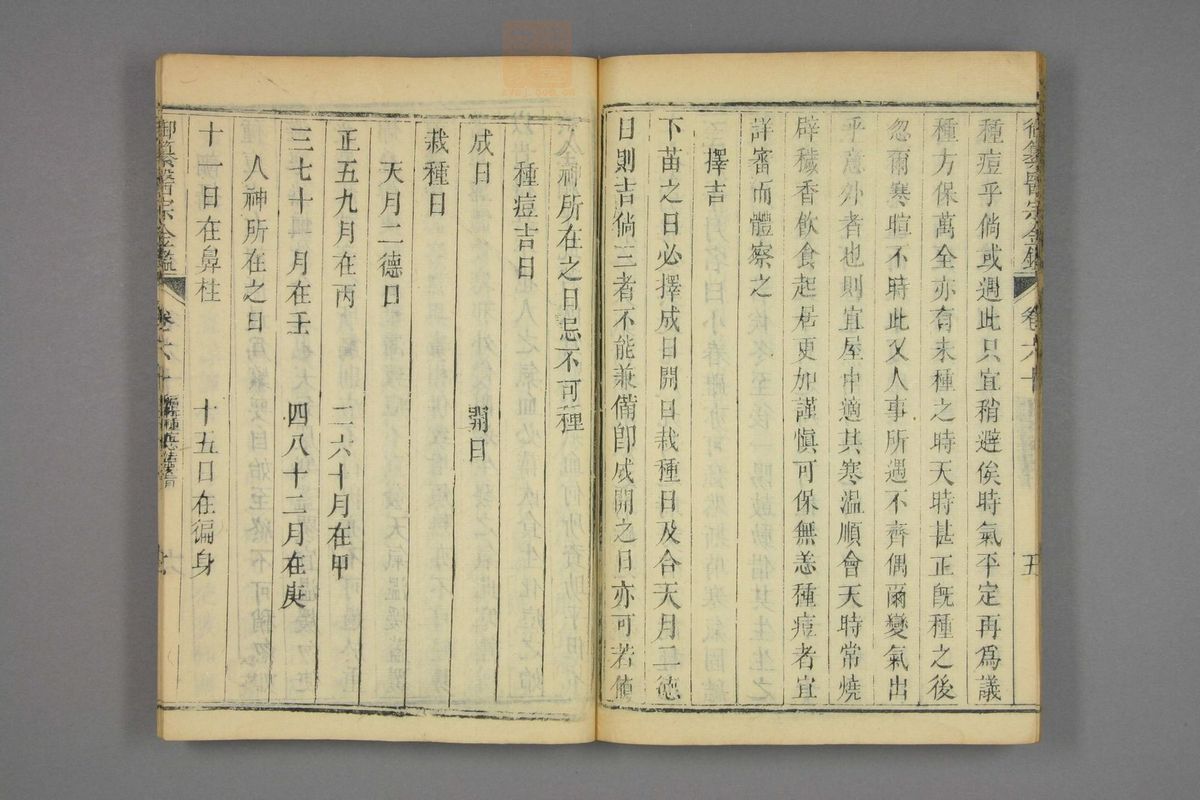 御纂醫宗金鑑 卷六十 五
種痘乎倘或遇此只宜稍避俟時氣平定再為議
種方保萬全亦有未種之時天時甚正既種之後
忽爾寒暄不時此又人事所遇不齊偶爾變氣出
乎意外者也則宜屋中適其寒温順會天時常燒
辟穢香飲食起居更加謹愼可保無恙種痘者宜
詳審而體察之
擇吉
下苗之日必擇成日開日栽種日及合天月二德
日則吉倘三者不能兼備卽成開之日亦可若値
人神所在之日忌不可種
種痘吉日
成日 開日
栽種日
天月二德日
正五九月在丙 二六十月在甲
三七十一月在壬 四八十二月在庚
人神所在之日
十一日在鼻柱 十五日在徧身
御纂醫宗金鑑 卷六十